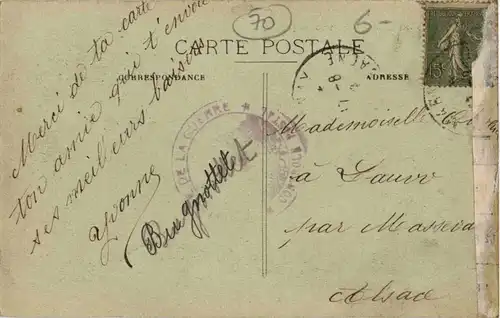 70
6-
CARTE POSTALE
CORRESPONDANCE
ADRESSE
15
Merci de ta carte
ton amie qui t'envoie
ses meilleurs baisers
Yvonne
Bugnottet
DE LA GUERRE ★
Mademoiselle
à Lauw
par Masseva
Alsace